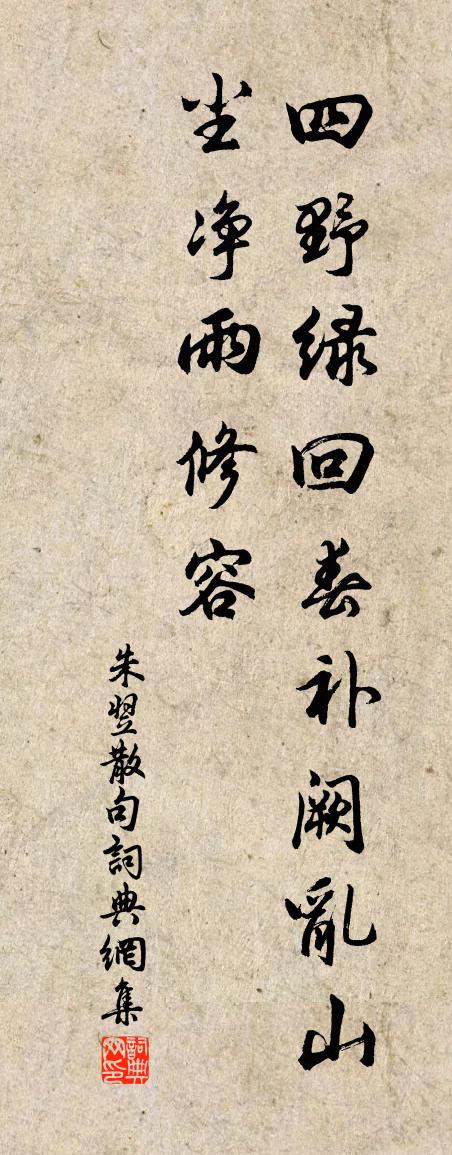 四野绿回春补阙亂山
尘净雨修容
朱翌散句詞典網集
詞典
网印